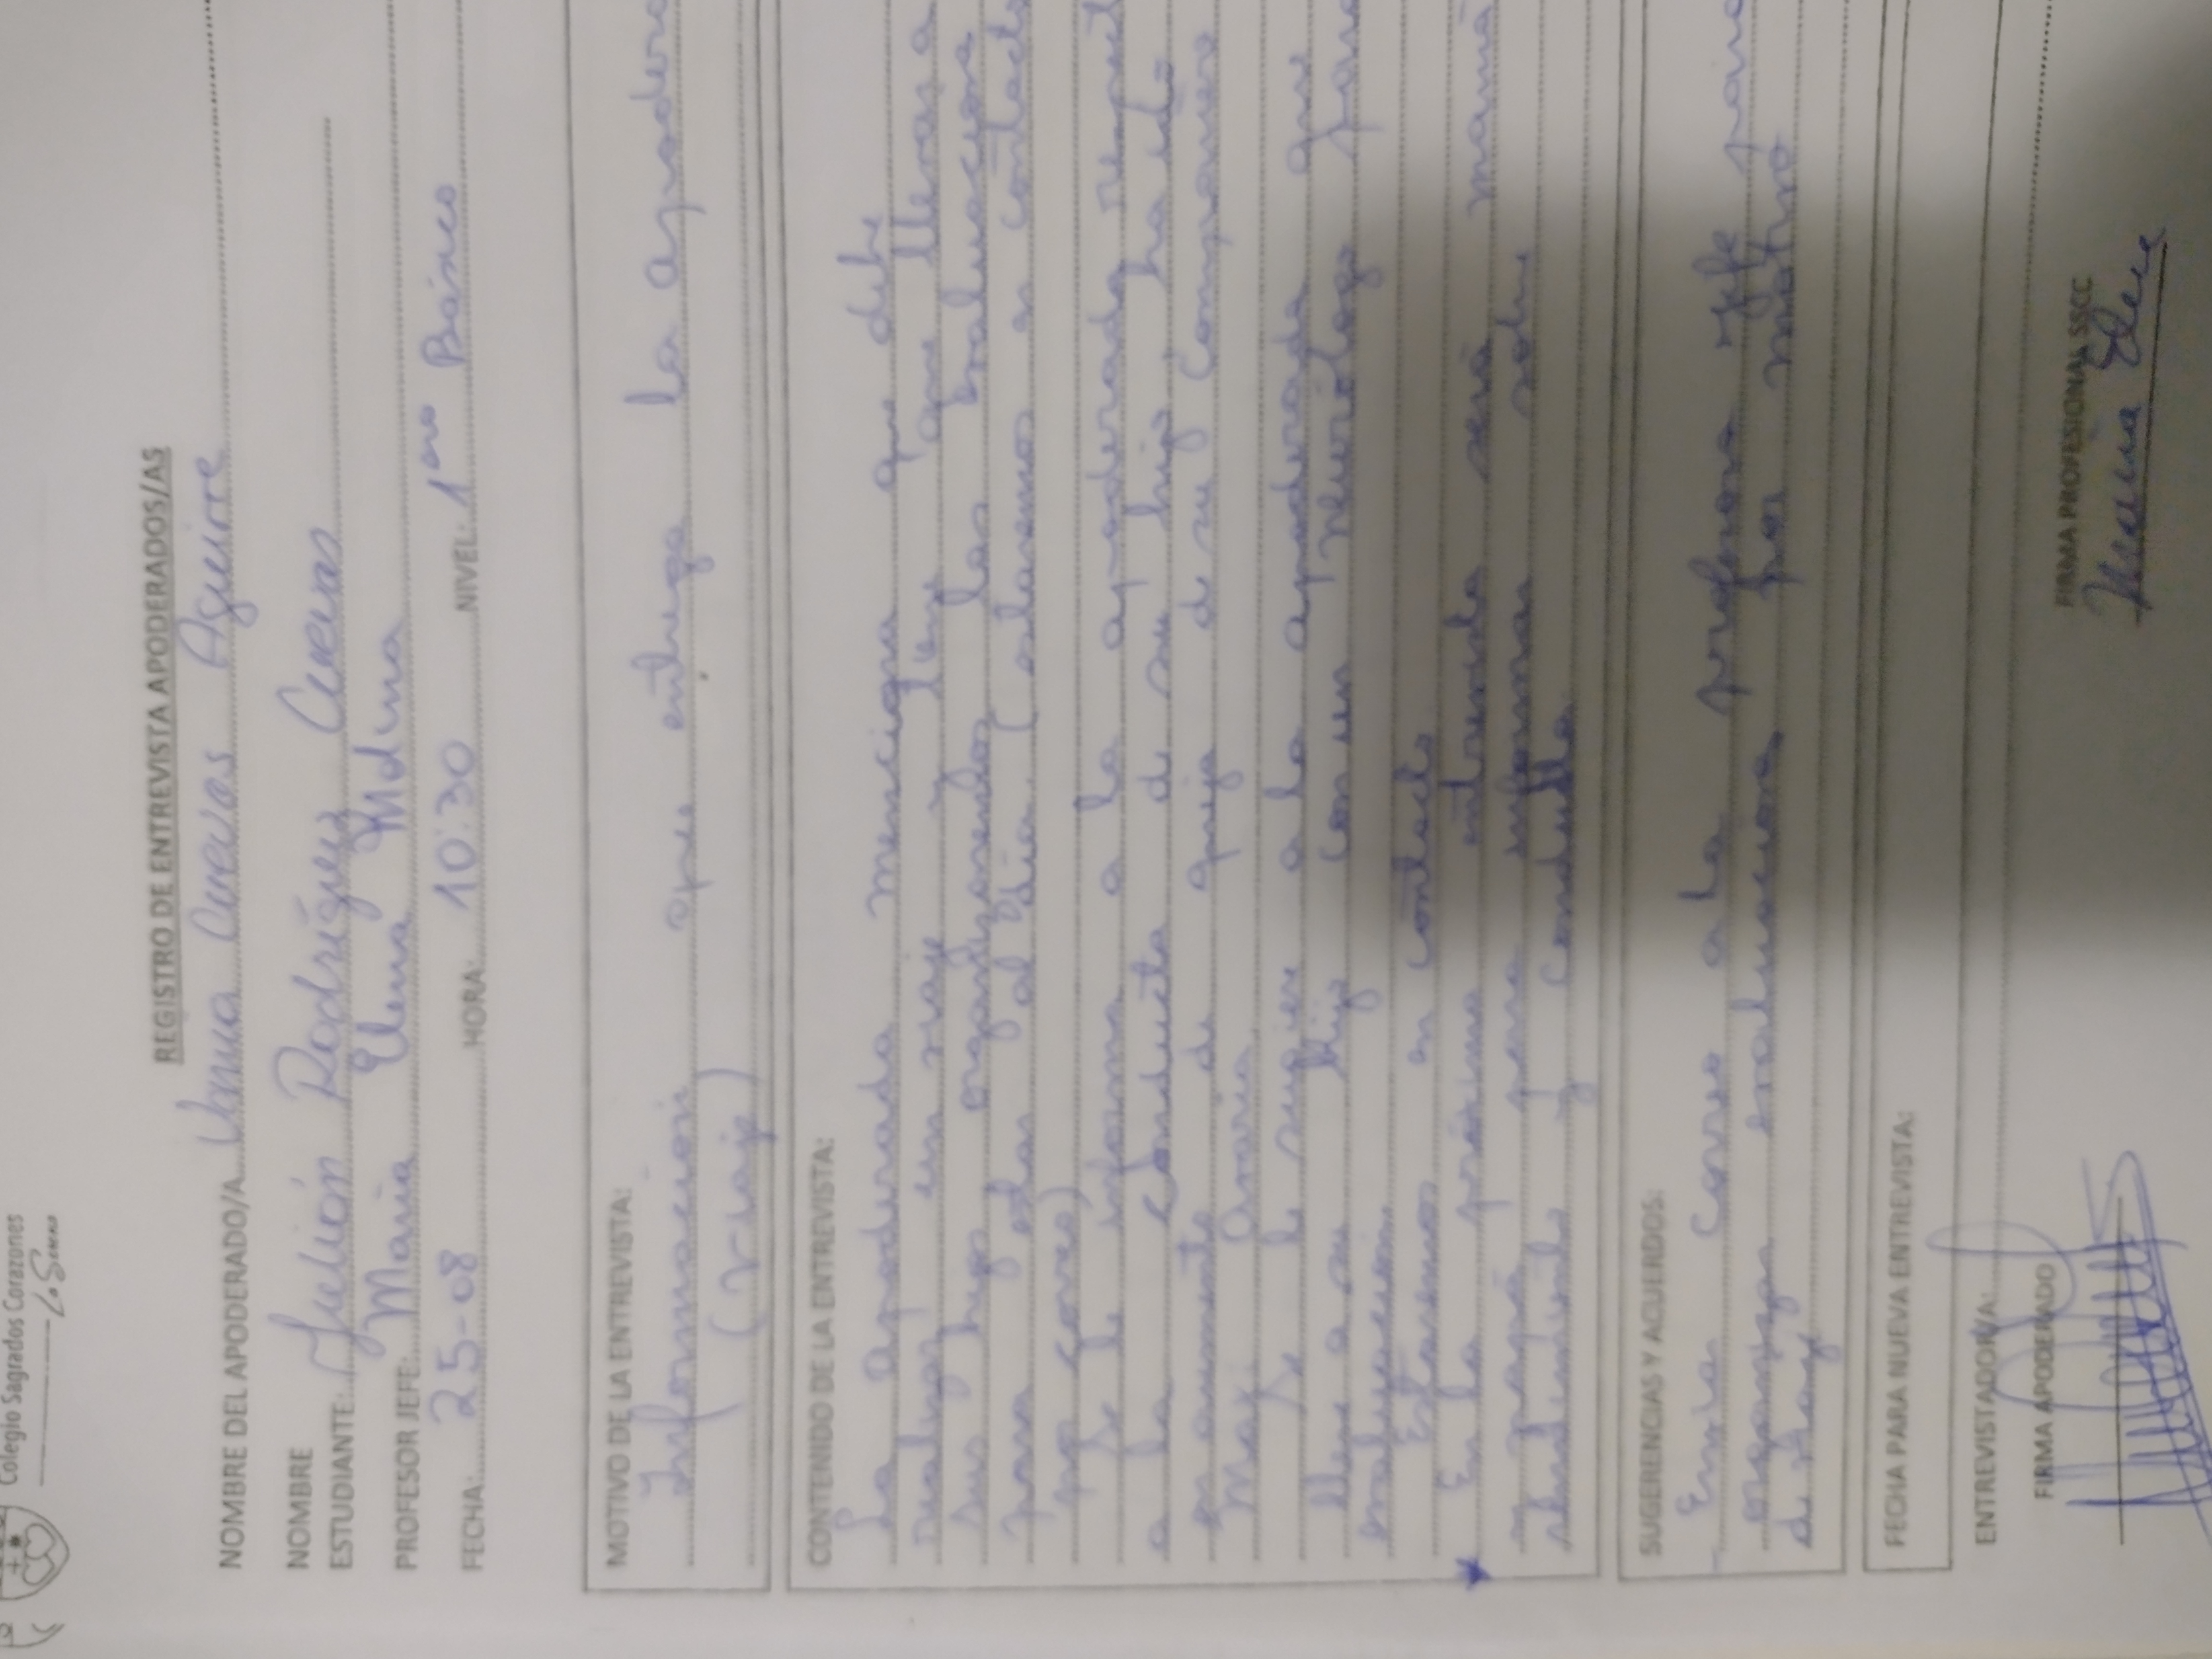 Colegio Sagrados Corazones
REGISTRO DE ENTREVISTA APODERADOS/AS
NOMBRE DEL APODERADO/A Vania Cuevas Aguirre
NOMBRE
ESTUDIANTE: Julián Rodríguez Cuevas
PROFESOR JEFE: María Elena Medina
FECHA: 25-08 HORA: 10:30 NIVEL: 1ero Básico
MOTIVO DE LA ENTREVISTA:
Información que entrega la apoderada
(viaje)
CONTENIDO DE LA ENTREVISTA:
La apoderada menciona que debe
realizar un viaje y tiene que llevar a
sus hijos organizaremos las evaluaciones
para estar al día. (estaremos en contacto
por correo)
Se le informa a la apoderada respecto
a la conducta de su hijo ha ido
en aumento de queja de su compañero
Maxi
Se le sugiere a la apoderada que
lleve a su hijo con un neurólogo para
evaluación.
Estaremos en contacto
En la próxima entrevista será mamá
y papá para informar sobre
rendimiento y conducta.
SUGERENCIAS Y ACUERDOS:
Enviar correo a la profesora jefe para
organizar evaluaciones por motivo
de viaje
FECHA PARA NUEVA ENTREVISTA:
ENTREVISTADOR/A:
FIRMA APODERADO FIRMA PROFESIONAL SSCC